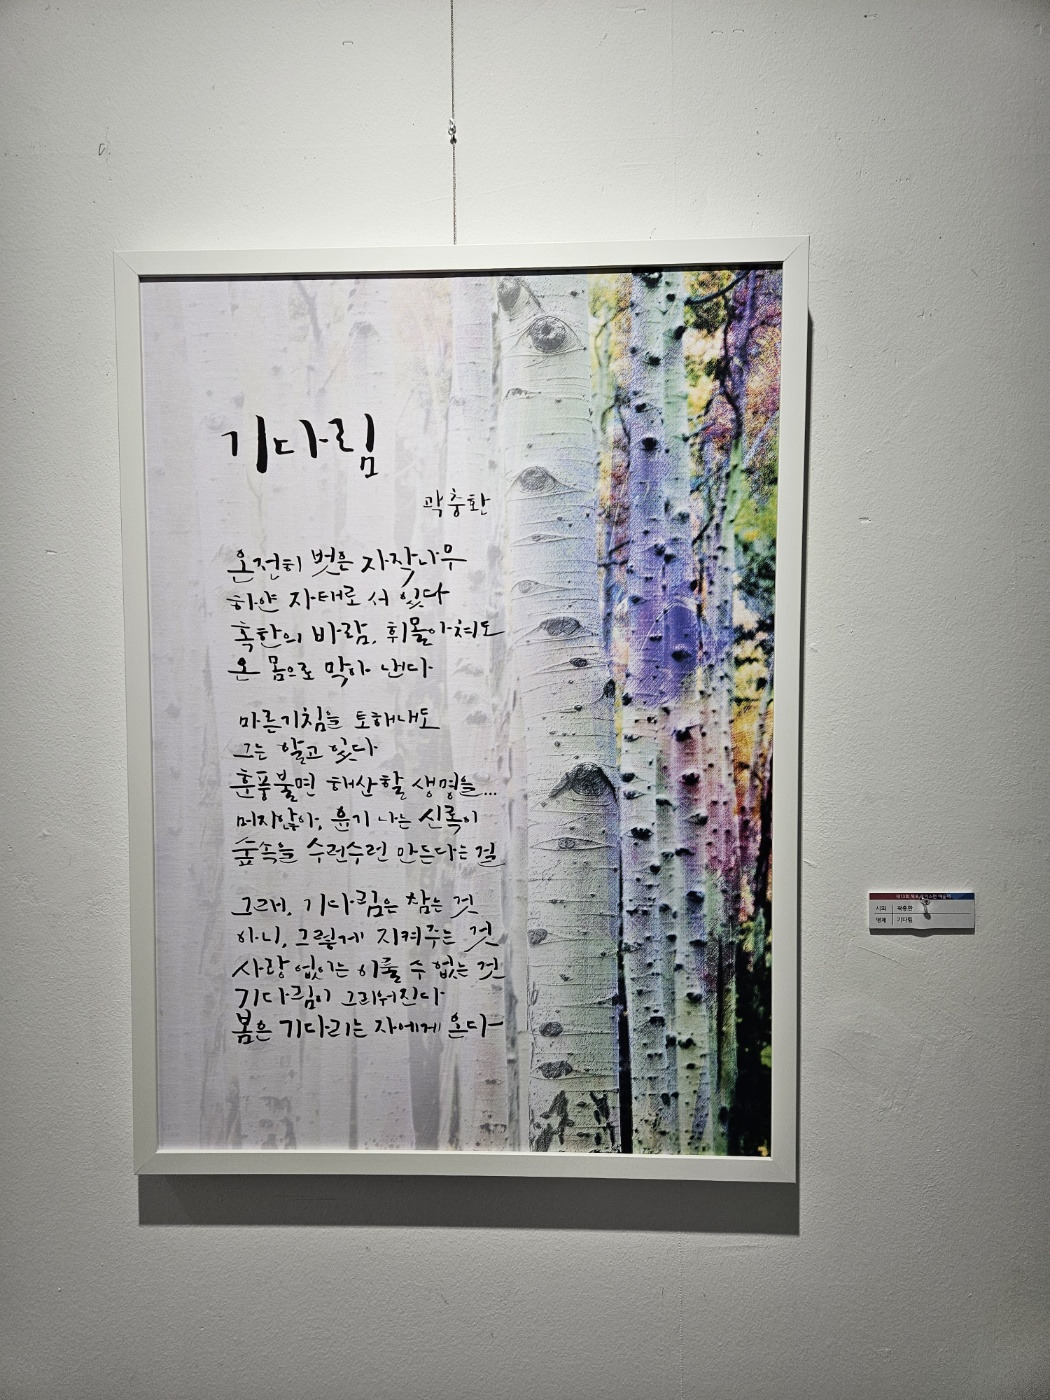 기다림
곽충환
온전히 벗은 자작나무
하얀 자태로 서 있다
혹한의 바람, 휘몰아쳐도
온 몸으로 막아 낸다
마른기침을 토해내도
그는 알고 있다
훈풍불면 해산할 생명을...
머지않아, 윤기 나는 신록이
숲속을 수런수런 만든다는 걸
그래서, 기다림은 참는 것
아니, 그렇게 지켜주는 것
사랑 없이는 이룰 수 없는 것
기다림이 그리워진다
봄은 기다리는 자에게 온다
시화 곽충환
명제 기다림